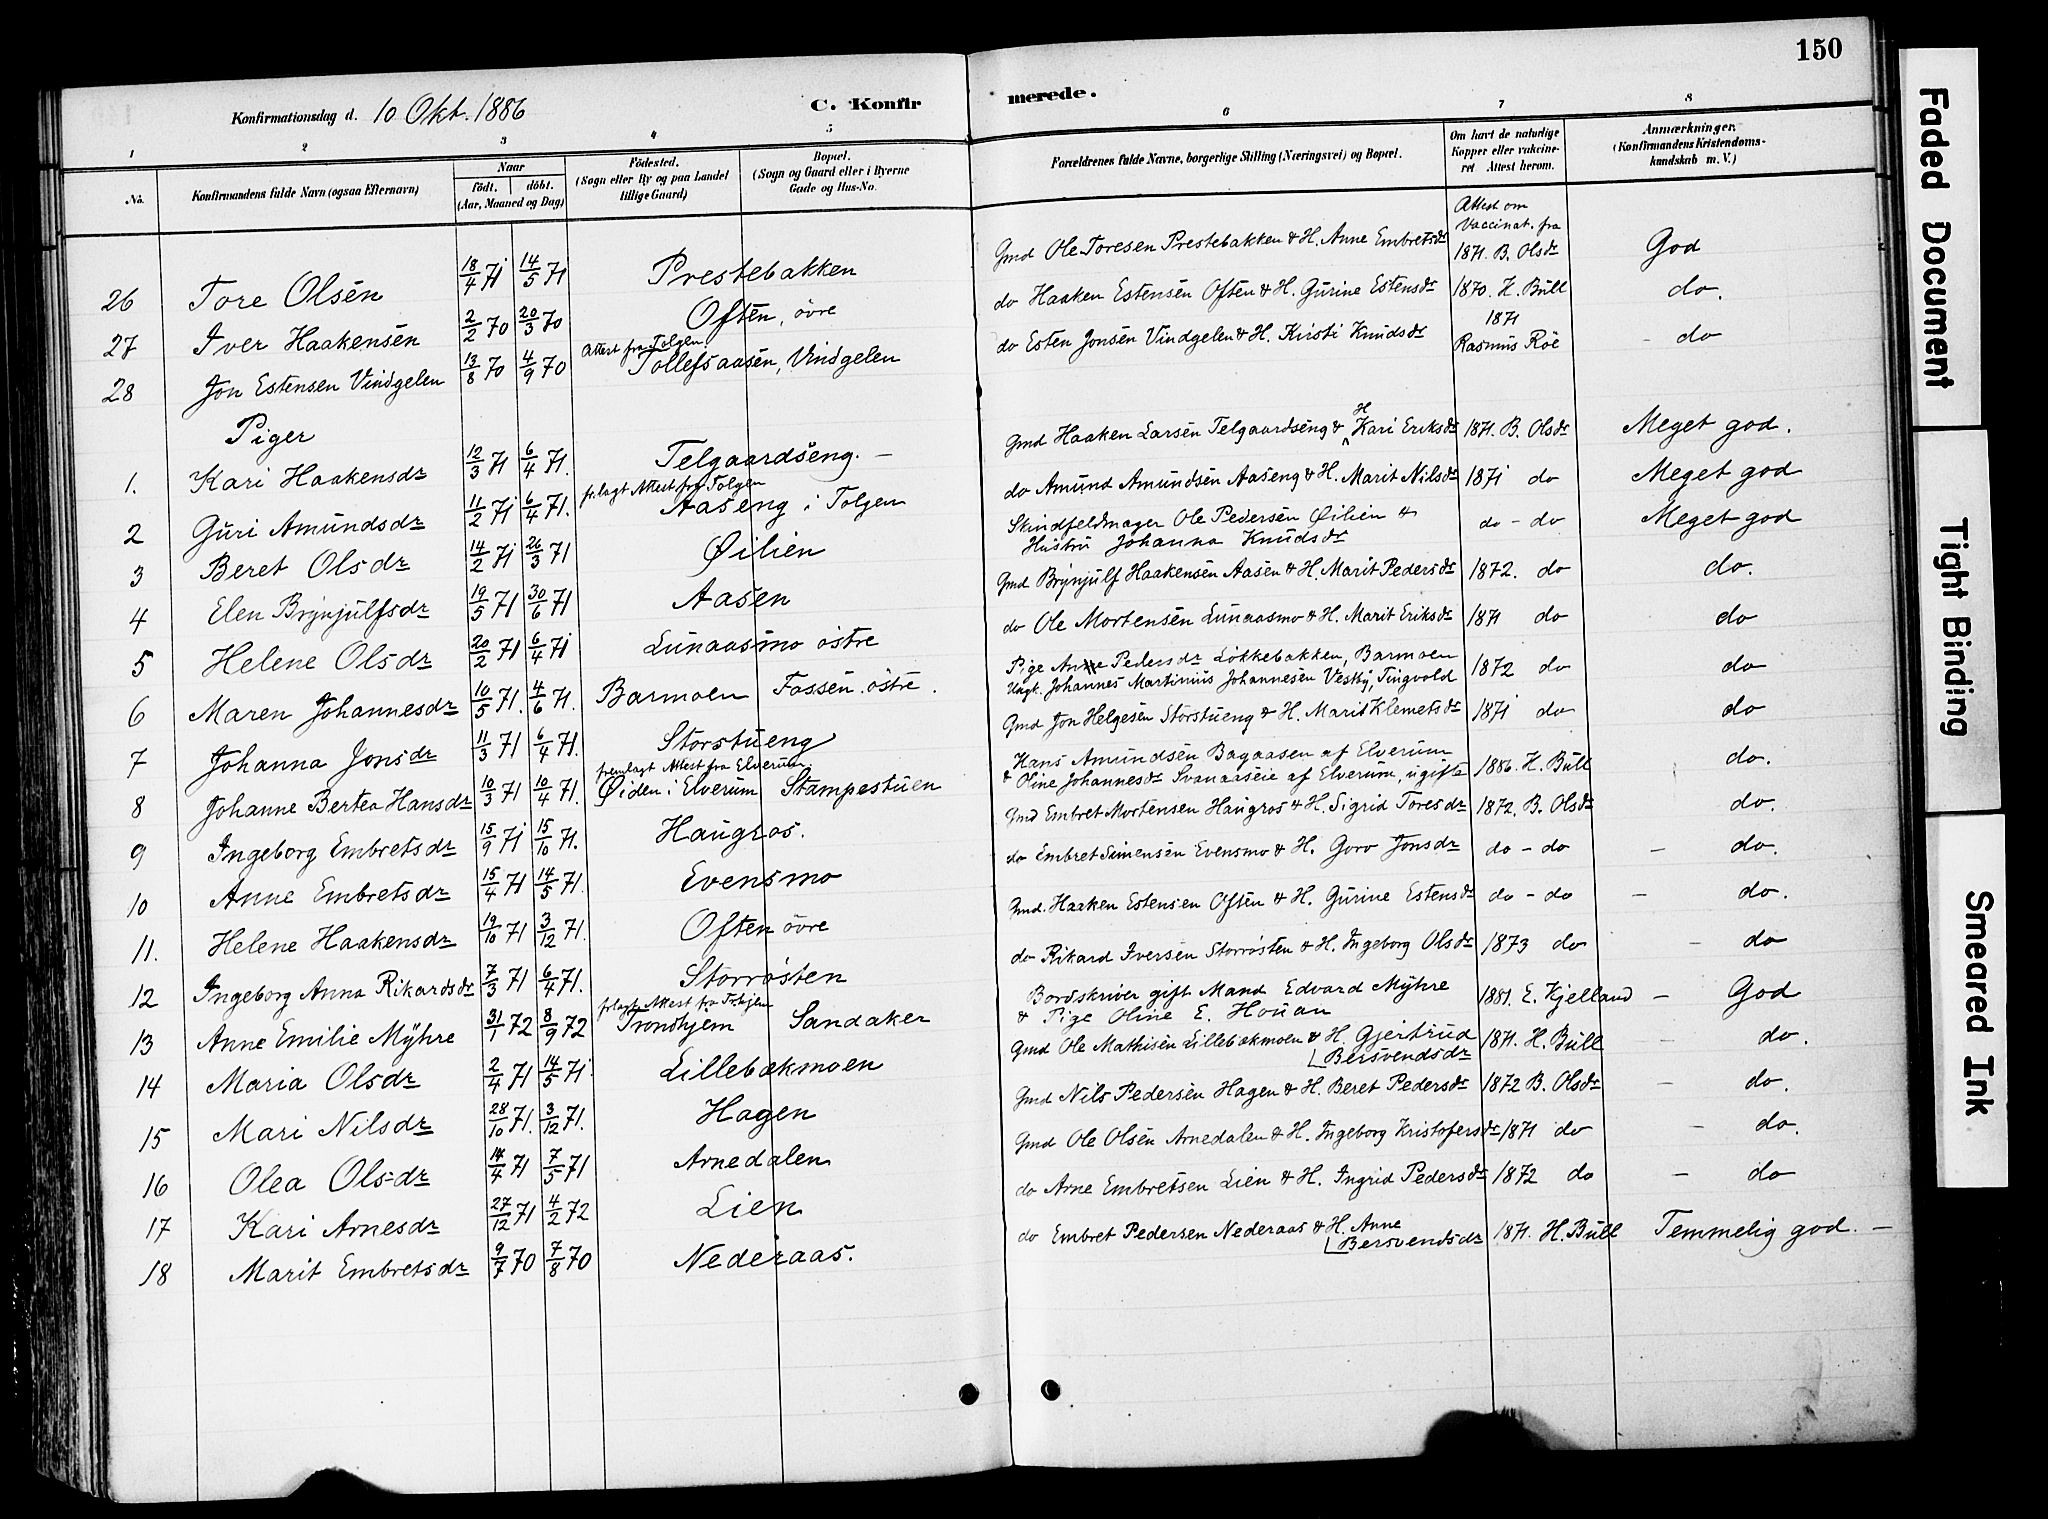 150
Konfirmationsdag d. 10 Okt. 1886 C. Konfirmerede.
1 2 3 4 5 6 7 8
No. Konfirmandens fulde Navn (ogsaa Efternavn) Naar født. døbt. (Aar, Maaned og Dag) Fødested. (Sogn eller By og paa Landet tillige Gaard) Bopæl. (Sogn og Gaard eller i Byerne Gade og Hus-No. Forældrenes fulde Navne, borgerlige Stilling (Næringsvei) og Bopæl. Om havt de naturlige Kopper eller vakcineret Attest herom. Anmærkninger. (Konfirmandens Kristendomskundskab m. V.)
26 Tore Olsen 18/4 71 14/5 71 Prestebakken Gmd Ole Toresen Prestebakken & H. Anne Embretsdr Attest om Vaccinat. fra 1871. B. Olsdr God
27 Iver Haakensen 2/2 70 20/3 70 Often, övre do Haaken Estensen Often & H. Gurine Estensdr 1870. H. Bull do.
28 Jon Estensen Vindgelen 13/8 70 4/9 70 Attest fra Tolgen. Tollefsaasen, Vindgelen do Esten Jonsen Vindgelen & H. Kirsti Knudsdr 1871 Rasmus Röe - do
Piger
1. Kari Haakensdr 12/3 71 6/4 71. Telgaardseng. - Gmd Haaken Larsen Telgaardseng & H Kari Eriksdr 1871. B. Olsdr Meget god.
2 Guri Amundsdr 11/2 71 6/4 71. fr.lagt Attest fra Tolgen Aaseng i Tolgen do Amund Amundsen Aaseng & H. Marit Nilsdr 1871 do Meget god
3 Beret Olsdr 14/2 71 26/3 71 Øilien Skindfeldmager Ole Pedersen Øilien & Hustru Johanna Knudsdr do - do Meget god
4 Elen Brynjulfsdr 19/5 71 30/6 71 Aasen Gmd Brynjulf Haakensen Aasen & H. Marit Pedersdr 1872. do do.
5 Helene Olsdr 20/2 71 6/4 71 Lunaasmo östre do Ole Mortensen Lunaasmo & H. Marit Eriksdr 1871 do do
6 Maren Johannesdr 10/5 71. 4/6 71. Barmoen Fossen östre. Pige Anne Pedersdr Lökkebakken, Barmoen Ungk. Johannes Martinius Johannesen Vestby, Tingvold 1872 do do
7 Johanna Jonsdr 11/3 71 6/4 71. Storstueng Gmd Jon Helgesen Storstueng & H. Marit Klemetsdr 1871 do do
8 Johanne Bertea Hansdr 10/3 71 10/4 71. fremlagt Attest fra Elverum. Øiden i Elverum Stampestuen Hans Amundsen Bagaasen af Elverum & Oline Johannesdr Svanaaseie af Elverum, ugifte 1886. H. Bull do.
9 Ingeborg Embretsdr 15/9 71 15/10 71. Haugros. Gmd Embret Mortensen Haugros & H. Sigrid Toresdr 1872. B. Olsdr do.
10 Anne Embretsdr 15/4 71 14/5 71. Evensmo do Embret Simensen Evensmo & H. Goro Jonsdr do - do - do.
11. Helene Haakensdr 19/10 71 3/12 71. Often övre Gmd. Haaken Estensen Often & H. Gurine Estensdr do - do - do.
12 Ingeborg Anna Rikardsdr 7/3 71 6/4 71. Storrösten do Rikard Iversen Storrösten & H. Ingeborg Olsdr 1873 do - do
13 Anne Emilie Myhre 31/1 72 8/9 72 fr.lagt Attest fra Trhjem Trondhjem Sandaker Bordskriver gift Mand Edvard Myhre & Pige Oline E. Houan 1881. E. Kjelland - God
14 Maria Olsdr 2/4 71 14/5 71. Lillebækmoen Gmd Ole Mathisen Lillebækmoen & H. Gjertrud Bersvendsdr 1871. H. Bull - do.
15 Mari Nilsdr 28/10 71. 3/12 71. Hagen Gmd Nils Pedersen Hagen & H. Beret Pedersdr 1872 B. Olsdr - do.
16 Olea Olsdr 14/4 71 7/5 71 Arnedalen Gmd Ole Olsen Arnedalen & H. Ingeborg Kristofersdr 1871 do - do.
17 Kari Arnesdr 27/12 71 4/2 72 Lien do Arne Embretsen Lien & H. Ingrid Pedersdr 1872 do - do
18 Marit Embretsdr 9/7 70 7/8 70 Nederaas. do Embret Pedersen Nederaas & H. Anne Bersvendsdr 1871. H. Bull Temmelig god. -
Faded Document
Tight Binding
Smeared Ink